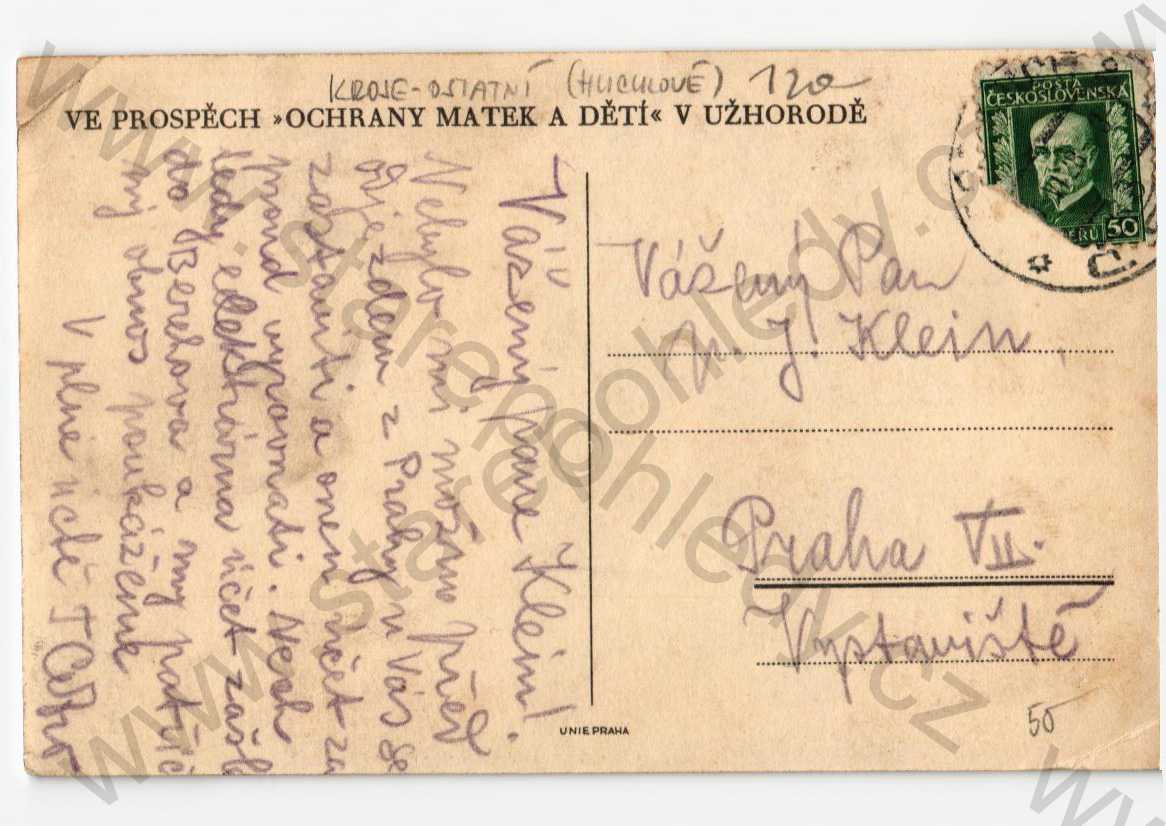 KROJE-OSTATNÍ (HUCULOVÉ) 120
VE PROSPĚCH »OCHRANY MATEK A DĚTÍ« V UŽHORODĚ
POŠTA
ČESKOSLOVENSKÁ
50
Vážený pane Klein!
Nebylo mi možno před
odjezdem z Prahy u Vás se
zastaviti a onen účet za
proud vyrovnati. Nech
tedy elektrárna účet zašle
do Berehova a my patřič
ný obnos poukážeme
V plné úctě
Vážený Pan
J. Klein,
Praha VII.
Výstaviště
UNIE PRAHA
50
www.starepohledy.cz
www.starepohledy.cz